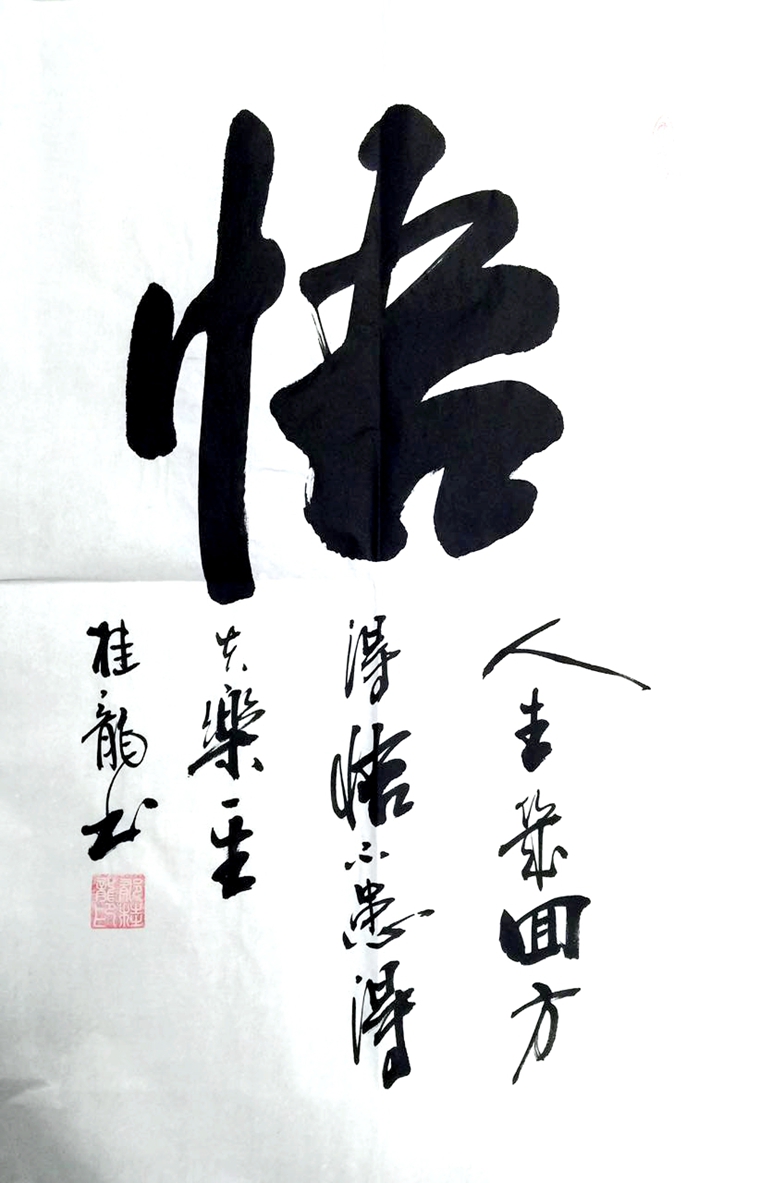 悟
人生几回方
得悟不患得
失樂一生
桂龍书